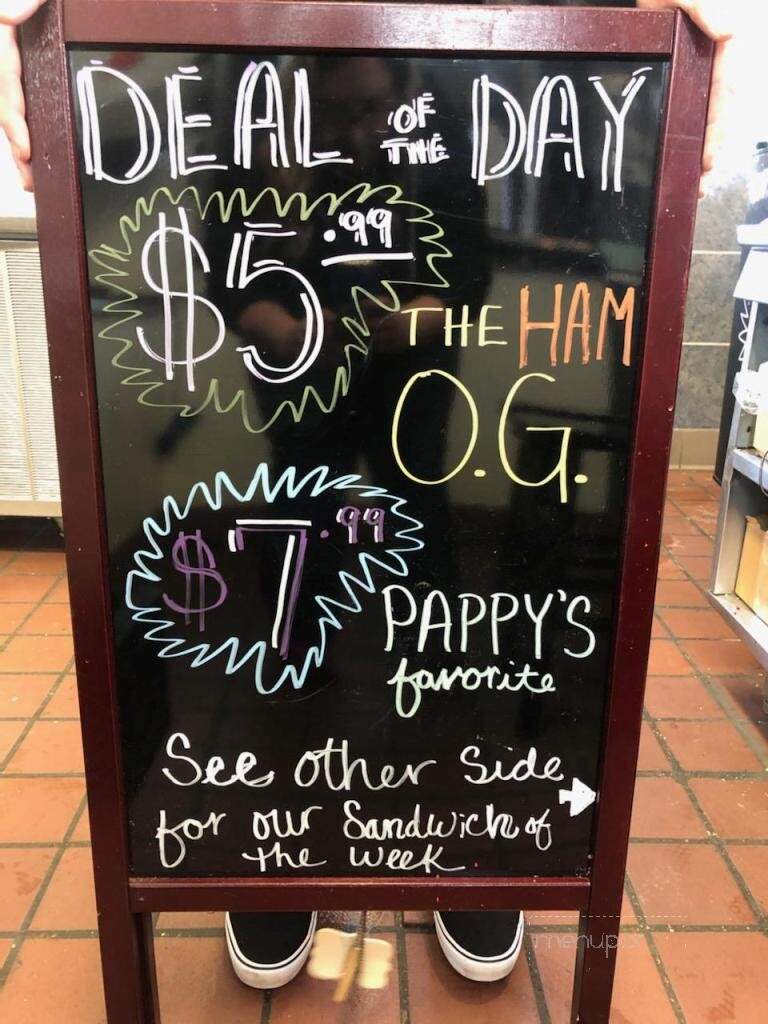 DEAL OF THE DAY
$5.99
THE HAM
O.G.
$7.99
PAPPY'S
favorite
See other side
for our Sandwich of
the week